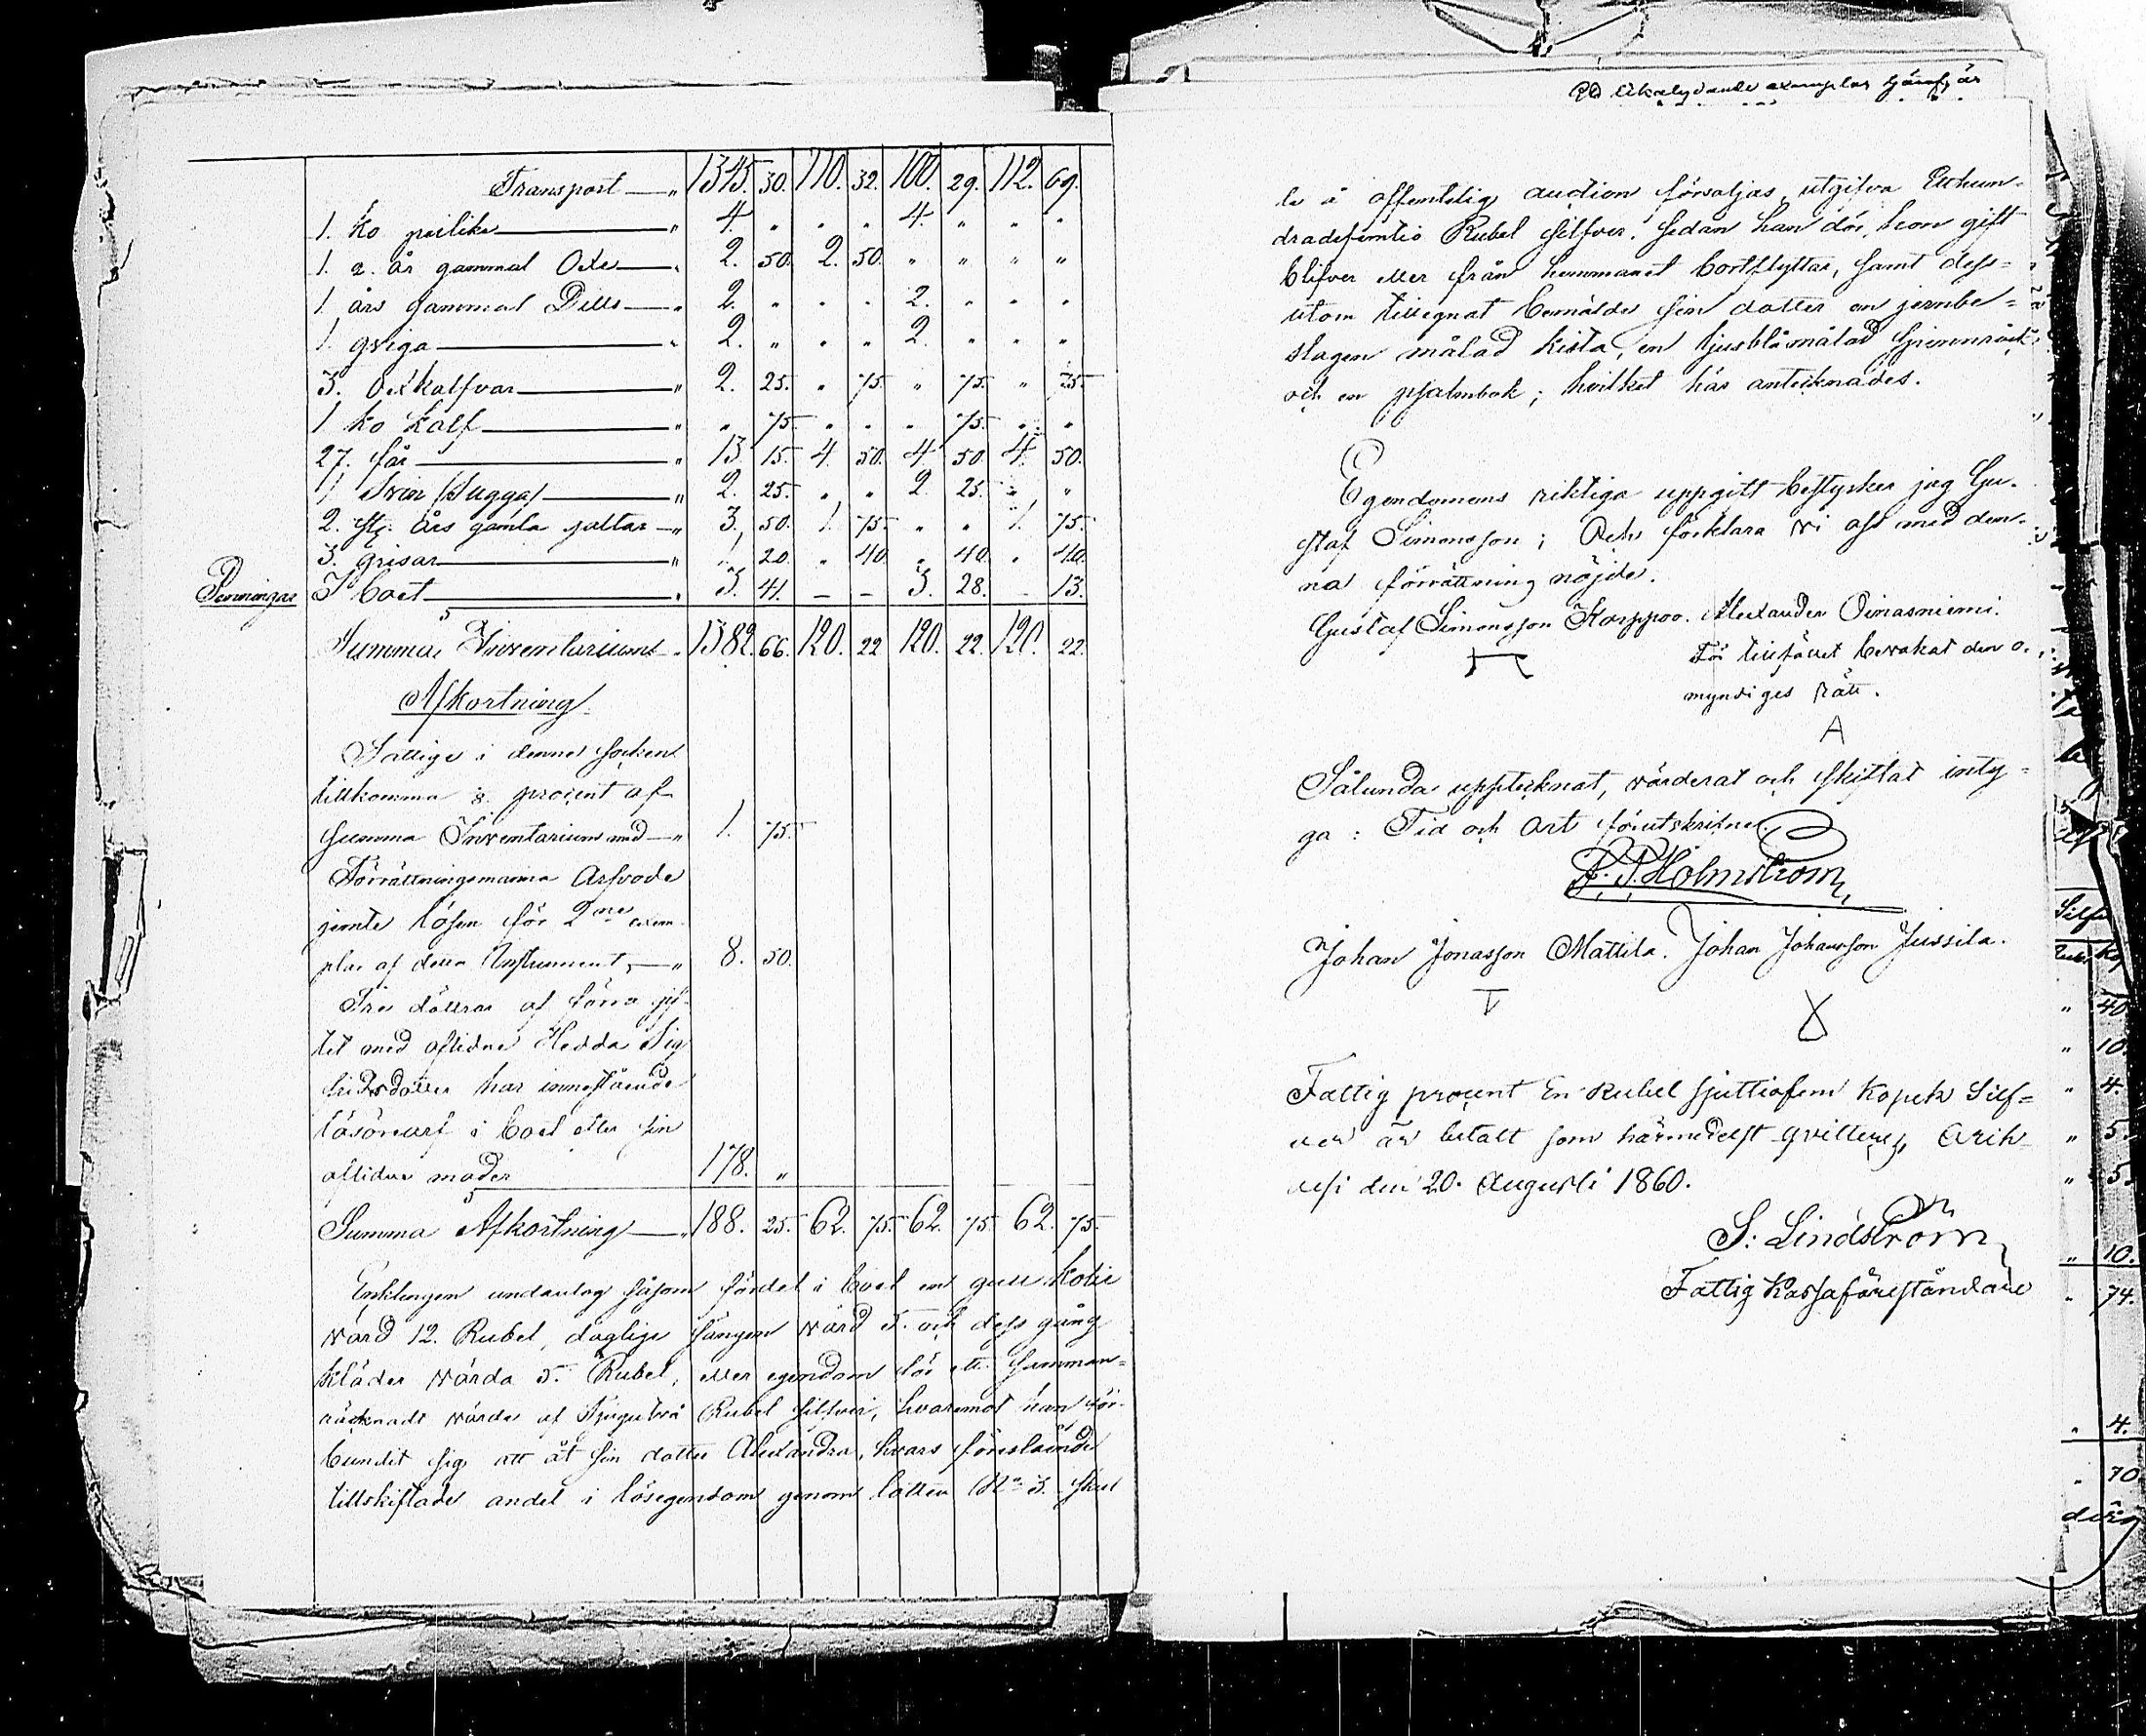 Transport — " 1345. 30. 110. 32. 100. 29. 112. 69.
1. Ko — " 4. " " " 4. " " "
1. 2. år gammal Oxe — " 2. 50. 2. 50. " " " "
1. års gammal — " 2. " " " 2. " " "
1. qviga — " 2. " " " 2. " " "
3. Oxkalfvar — " 2. 25. " 75. " 75. " 75.
1 Ko Kalf — " " 75. " " " 75. " "
27. får — " 13. 15. 4. 50. 4. 50. 4. 50.
1 Svin /Sugga/ — " 2. 25. " " 2. 25. " "
2. st. års gamla galtar — " 3. 50. 1. 75. " " 1. 75.
3. grisar — " 1. 20. " 40. " 40. " 40.
Penningar I boet — " 3. 41. – – 3. 28. – 13.
Summa Inventarium — 1382. 66. 120. 22 120. 22. 120. 22.
Afkortning
Fattige i denna socken
tillkomma procent af
Summa Inventarium med — " 1. 75.
Förrättningsmanna Arfvode
jemte lösen för 2ne exem-
plar af detta Instrument, — " 8. 50.
Tre döttrar af förra gif-
tet med aflidne Hedda Sig-
fridsdotter har innestående
lösörearf i boet efter sin
aflidna moder 178. "
Summa Afkortning — " 188. 25. 62. 75. 62. 75. 62. 75.
Enklingen undantog såsom fördel i boet en
värd 12. Rubel, daglige sängen värd 5. och dess gång
kläder värda 5. Rubel, eller egendom för ett samman-
räcknadt värde af Tjugutvå Rubel Silfver, hvaremot han för-
bundit sig att åt sin dotter Alexandra, hvars förestående
tillskiftade andel i lösegendom genom lotten No 3. skul
På likalydande exemplar
le å offentelig auction försäljas, utgifva Etthun-
dradefemtio Rubel Silfver, sedan han dör, hon gift
blifver eller från hemmanet bortflyttar, samt dess-
utom tillegnat bemälde sin dotter en jernbe-
slagen målad kista, en ljusblåmålad
och en psalmbok; hvilket här antecknades.
Egendomens riktiga uppgift bestyrker jag Gu-
staf Simonsson; Och förklara vi oss med den-
na förrättning nöjde.
Gustaf Simonsson Korppoo. Alexander Oinasniemi.
För tillfället bevakat den o-
myndiges rätt.
A
Sålunda upptecknat, värderat och skiftat inty-
ga: Tid och Ort förutskrifne.
Holmström
Johan Jonasson Mattila. Johan Johansson Jussila.
Fattig procent En Rubel sjuttiofem Kopek Silf-
ver är betalt som härmedelst qvitteres,
den 20. Augusti 1860.
S: Lindström
Fattig Kassaföreståndare
Silf
40
" 10
" 4.
" 5.
" 5.
" 10.
" 74.
" 4.
" 70